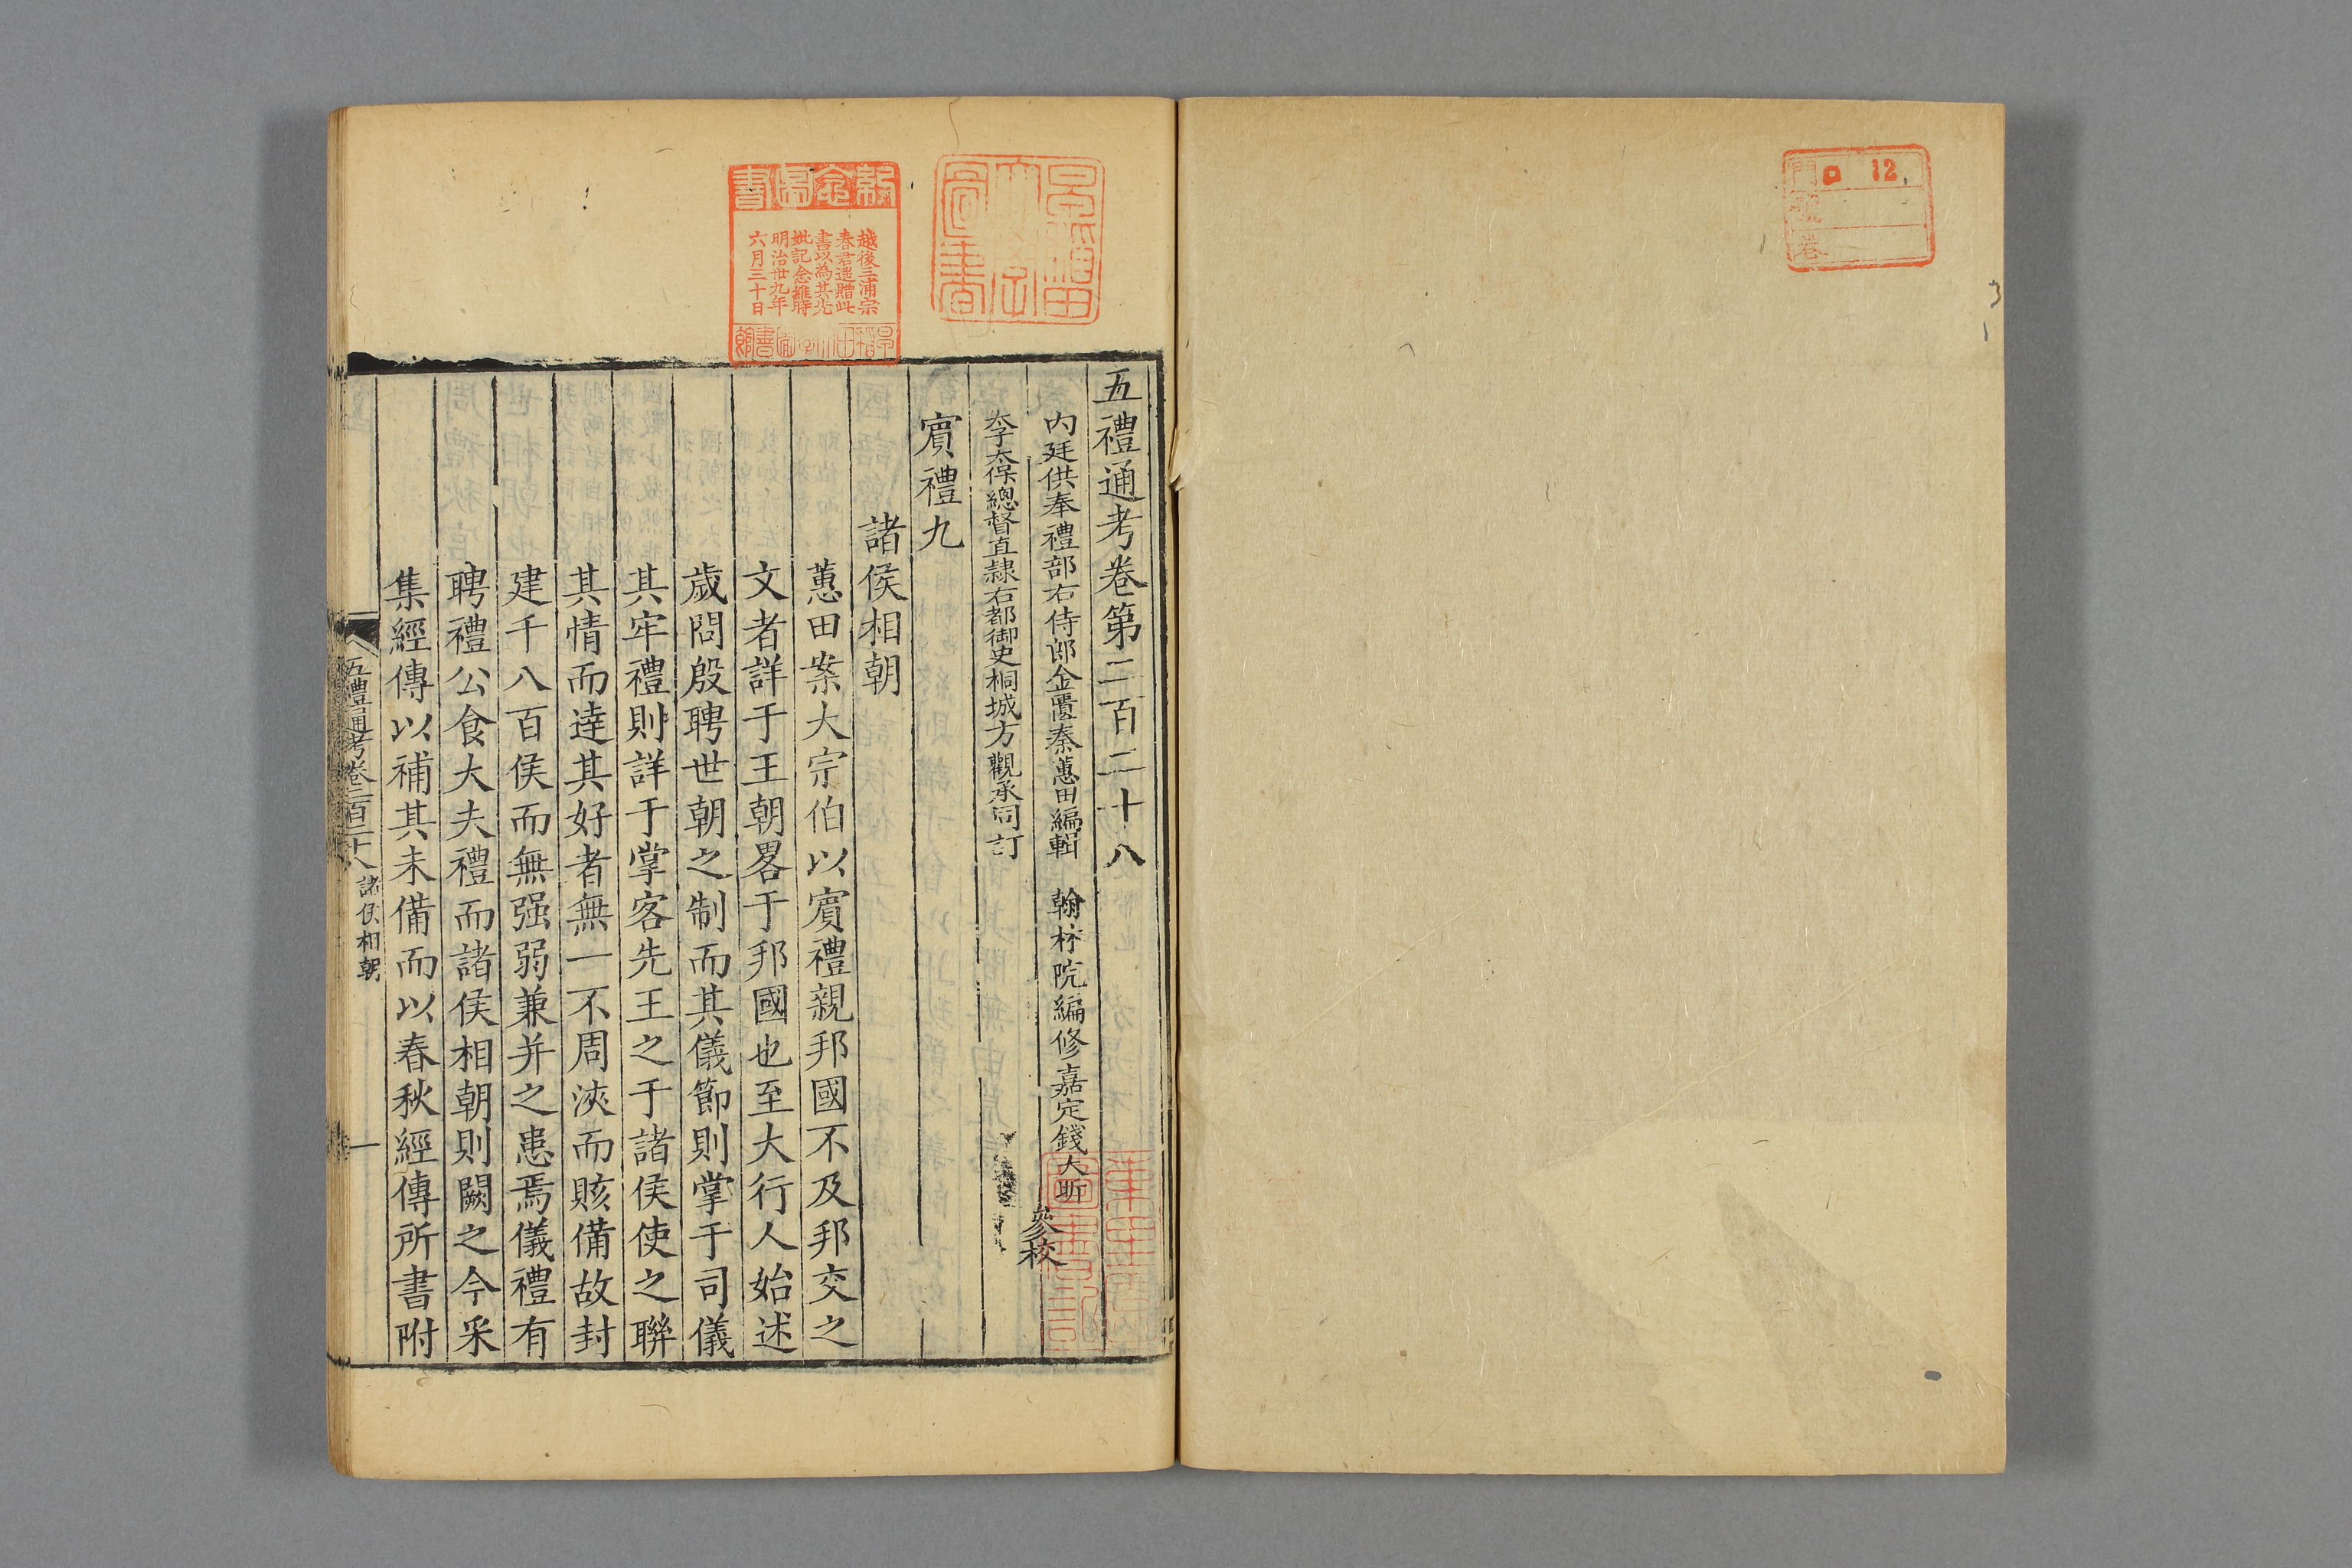 五禮通考卷第二百二十八
内廷供奉禮部右侍郎金匱秦蕙田編輯　翰林院編修嘉定錢大昕
太子太保總督直隸右都御史桐城方觀承同訂
參校
賓禮九
諸侯相朝
蕙田案大宗伯以賓禮親邦國不及邦交之
文者詳于王朝畧于邦國也至大行人始述
歲問殷聘世朝之制而其儀節則掌于司儀
其牢禮則詳于掌客先王之于諸侯使之聯
其情而達其好者無一不周浹而賅備故封
建千八百侯而無强弱兼并之患焉儀禮有
聘禮公食大夫禮而諸侯相朝則闕之今采
集經傳以補其未備而以春秋經傳所書附
五禮通考卷二百二十八 諸侯相朝
一
越後三浦宗
春君遺贈此
書以為其先
妣記念維時
明治卅九年
六月三十日
門 12
號
卷